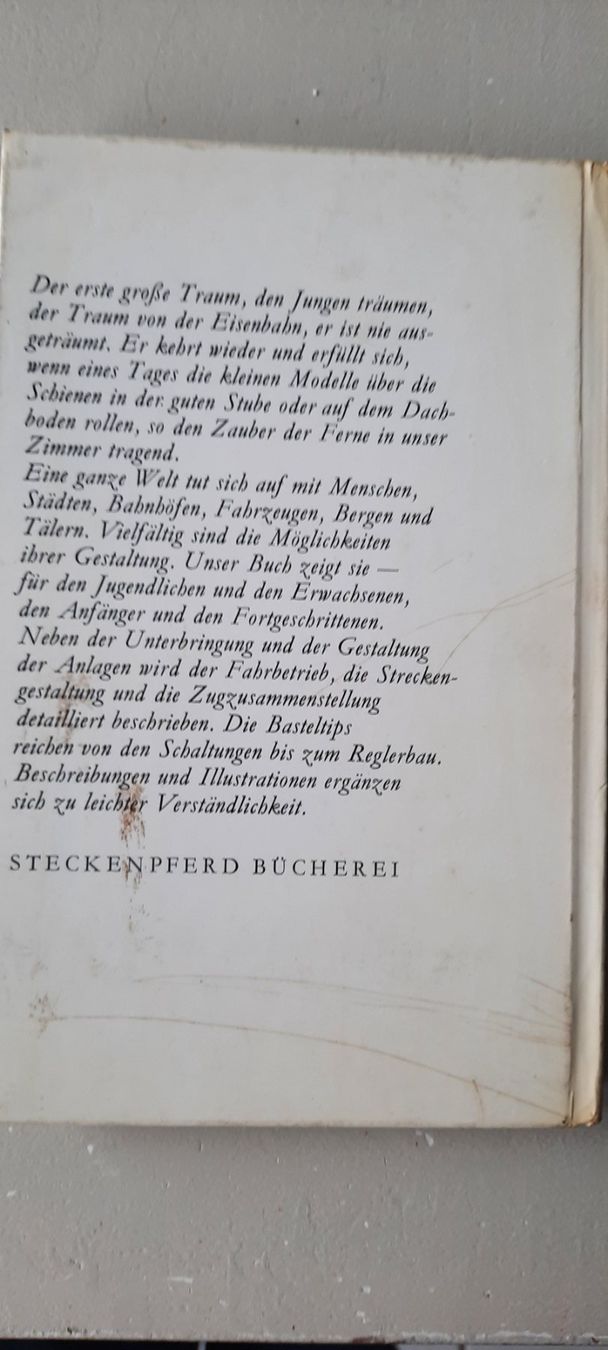 Der erste große Traum, den Jungen träumen,
der Traum von der Eisenbahn, er ist nie aus-
geträumt. Er kehrt wieder und erfüllt sich,
wenn eines Tages die kleinen Modelle über die
Schienen in der guten Stube oder auf dem Dach-
boden rollen, so den Zauber der Ferne in unser
Zimmer tragend.
Eine ganze Welt tut sich auf mit Menschen,
Städten, Bahnhöfen, Fahrzeugen, Bergen und
Tälern. Vielfältig sind die Möglichkeiten
ihrer Gestaltung. Unser Buch zeigt sie —
für den Jugendlichen und den Erwachsenen,
den Anfänger und den Fortgeschrittenen.
Neben der Unterbringung und der Gestaltung
der Anlagen wird der Fahrbetrieb, die Strecken-
gestaltung und die Zugzusammenstellung
detailliert beschrieben. Die Basteltips
reichen von den Schaltungen bis zum Reglerbau.
Beschreibungen und Illustrationen ergänzen
sich zu leichter Verständlichkeit.
STECKENPFERD BÜCHEREI